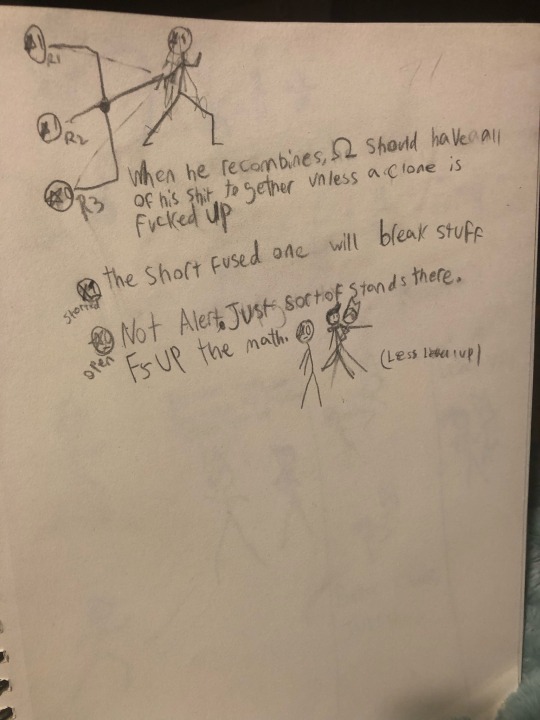 R1
R2
R3
When he recombines, Ω should have all
of his shit together unless a clone is
fucked up
The short fused one will break stuff
shorted
Not Alert. Just sort of stands there.
open
Fs UP the math.
(Less level up)